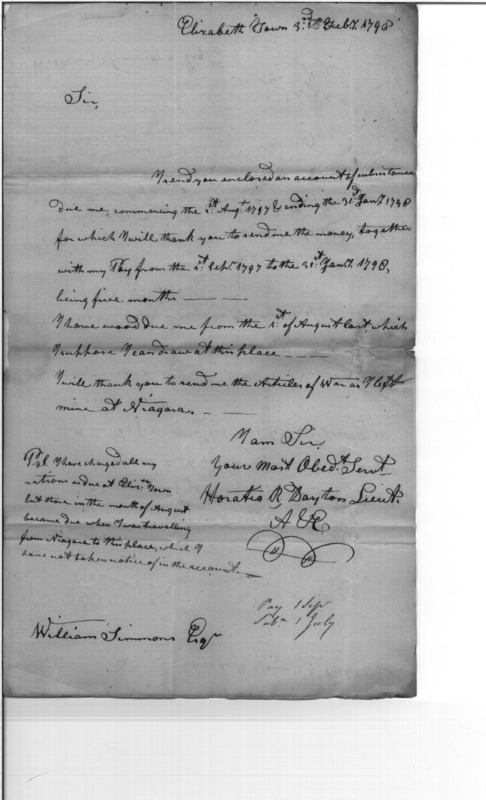 Elizabeth Town 3.d Feb.y 1798
Sir,
I send you enclosed an account of subsistance
due me, commencing the 1.st Aug.t 1797 & ending the 31.st Jan.y 1798
for which I will thank you to send me the money, together
with my Pay from the 1.st Sep.r 1797 to the 31.st Jan.y 1798,
being five months — —
I have wood due me from the 1.st of August last, which
I suppose I can draw at this place — —
I will thank you to send me the Articles of War as I left
mine at Niagara. — —
I am Sir,
Your Most Obed.t Serv.t
Horatio R Dayton Lieut.
A & E
P.S. I have charged all my
rations due at Eliz.a Town
but those in the month of August
became due when I was travelling
from Niagara to this place, which I
have not taken notice of in the account. —
Pay 1 Sep
Sub.n 1 July
William Simmons Esq.r